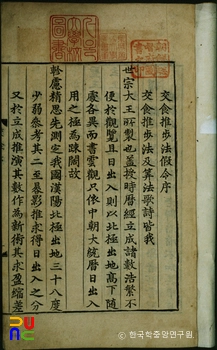 交食推步法假令序
交食推步法及算法歌詩皆我
世宗大王所製也盖授時曆經立成諸數浩繁不
便於觀覽且日出入則以北極出地高下隨
處各異而書雲觀只依中朝大統曆日出入
用之極為疎闊故
軫慮精思先測定我國漢陽北極出地三十八度
少弱參考其二至晷影推求得日出入之分
又於立成推演其數作為新術其求盈縮差
© 한국학중앙연구원